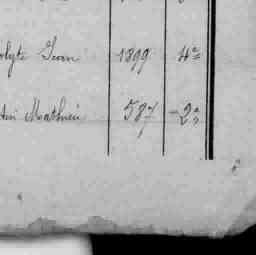 olyte Jean 1399 4º
tin Mathieu 587 - 2º